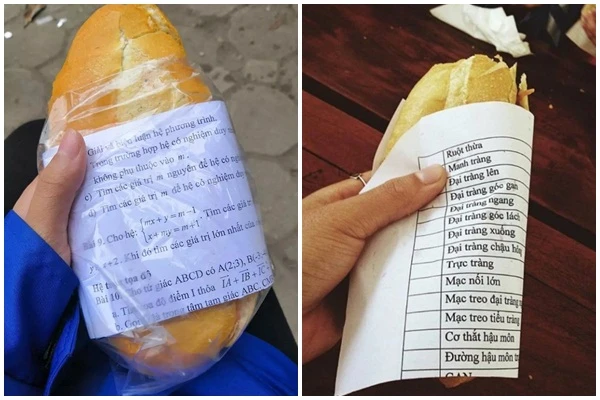 Giải và biện luận hệ phương trình.
Trong trường hợp hệ có nghiệm duy
không phụ thuộc vào m.
c) Tìm các giá trị m nguyên để hệ có nghiệm
d) Tìm các giá trị m để hệ có nghiệm duy
Bài 9. Cho hệ: { mx + y = m − 1
x + my = m + 1 . Tìm các giá trị
= 2. Khi đó tìm các giá trị lớn nhất của
Hệ trục tọa độ
Bài 10. Cho tứ giác ABCD có A(2;3),
a. Tìm tọa độ điểm I thỏa IA + IB + IC
b. Gọi G là trọng tâm tam giác ABC.
Ruột thừa
Manh tràng
Đại tràng lên
Đại tràng góc gan
Đại tràng ngang
Đại tràng góc lách
Đại tràng xuống
Đại tràng chậu hông
Trực tràng
Mạc nối lớn
Mạc treo đại tràng
Mạc treo tiểu tràng
Cơ thắt hậu môn
Đường hậu môn
GAN